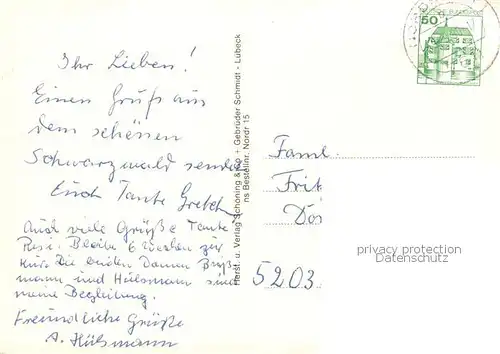 Ihr Lieben!
Einen Gruß aus
dem schönen
Schwarzwald sendet
Euch Tante Gretel
Auch viele Grüße Tante
Resi. Bleibe 6 Wochen zur
Kur. Die beiden Damen
mann und Hülsmann sind
meine Begleitung.
Freundliche Grüße
A. Hülsmann
Herst. u. Verlag Schöning & Co + Gebrüder Schmidt - Lübeck
ns Bestellnr. Nordr 15
50
Faml.
Frit
Dör
5203
privacy protection
Datenschutz